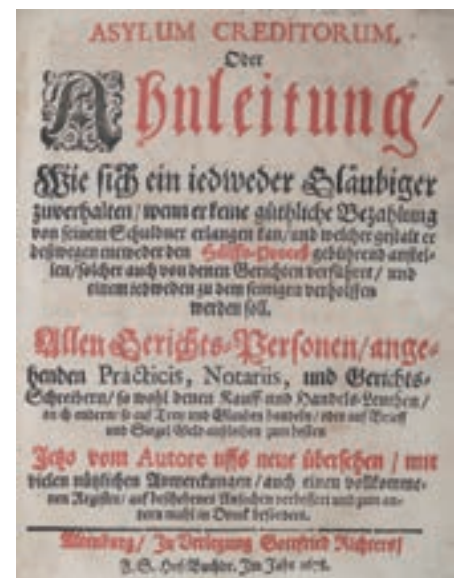 ASYLUM CREDITORUM,
Oder
Anleitung/
Wie sich ein iedweder Gläubiger
zuverhalten/wenn er keine güthliche Bezahlung
von seinem Schuldner erlangen kan/und welcher gestalt er
deßwegen entweder den Hülffs-Proceß gebührend anstel-
len/solcher auch von denen Gerichten verführet/ und
einem iedweden zu dem seinigen verholffen
werden soll.
Allen Gerichts-Personen/ange-
henden Practicis, Notariis, und Gerichts-
Schreibern/ so wohl denen Kauff und Handels-Leuthen/
auch andern/ so auf Treu und Glauben handeln/ oder auf Brieff
und Siegel Geld außleihen zum besten
Jetzo vom Autore uffs neue übersehen / mit
vielen nützlichen Anmerckungen/auch einen vollkomme-
nen Register/ auf beschehenes Ansuchen verbessert und zum an-
dern mahl in Druck befördert.
Altenburg/ In Verlegung Gottfried Richters/
F. S. Hof-Buchdr. Im Jahr 1678.